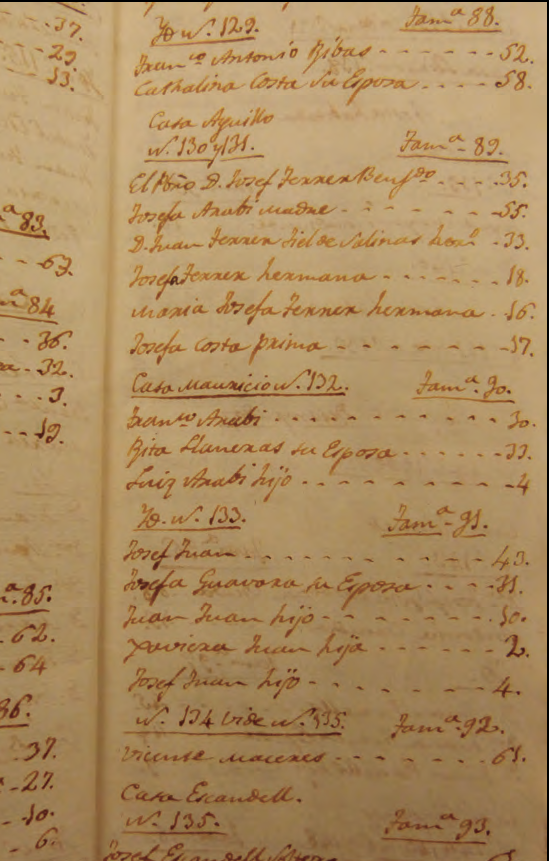 37.
29
13.
83.
63.
84
36.
32.
3.
19.
85.
62.
64
86.
37.
27.
10.
6.
Yd. N. 129. Fam.ª 88.
Fran.co Antonio Ribas - - - - - - 52.
Cathalina Costa su Esposa - - - - 58.
Casa Aguillo
N. 130 y 131. Fam.ª 89.
El D. Josef Ferrer - - - 35.
Josefa Arabi Madre - - - - - - 55.
D. Juan Ferrer Fiel de Salinas her.o - 33.
Josefa Ferrer hermana - - - - - - 18.
Maria Josefa Ferrer hermana - 16.
Josefa Costa prima - - - - - - - 17.
Casa Mauricio N. 132. Fam.ª 90.
Fran.co Arabi - - - - - - - - - - 30.
Rita Llaneras su Esposa - - - - - - 33.
Luiz Arabi hijo - - - - - - - - - 4
Yd. N. 133. Fam.ª 91.
Josef Juan - - - - - - - - - - - 43.
Josefa Guavara su Esposa - - - - 31.
Juan Juan hijo - - - - - - - - 10.
Xaviera Juan hija - - - - - - 2.
Josef Juan hijo - - - - - - - - 4.
N. 134 Vide N. 135. Fam.ª 92.
Vicente - - - - - - - 61.
Casa Escandell.
N. 135. Fam.ª 93.
Josef Escandell